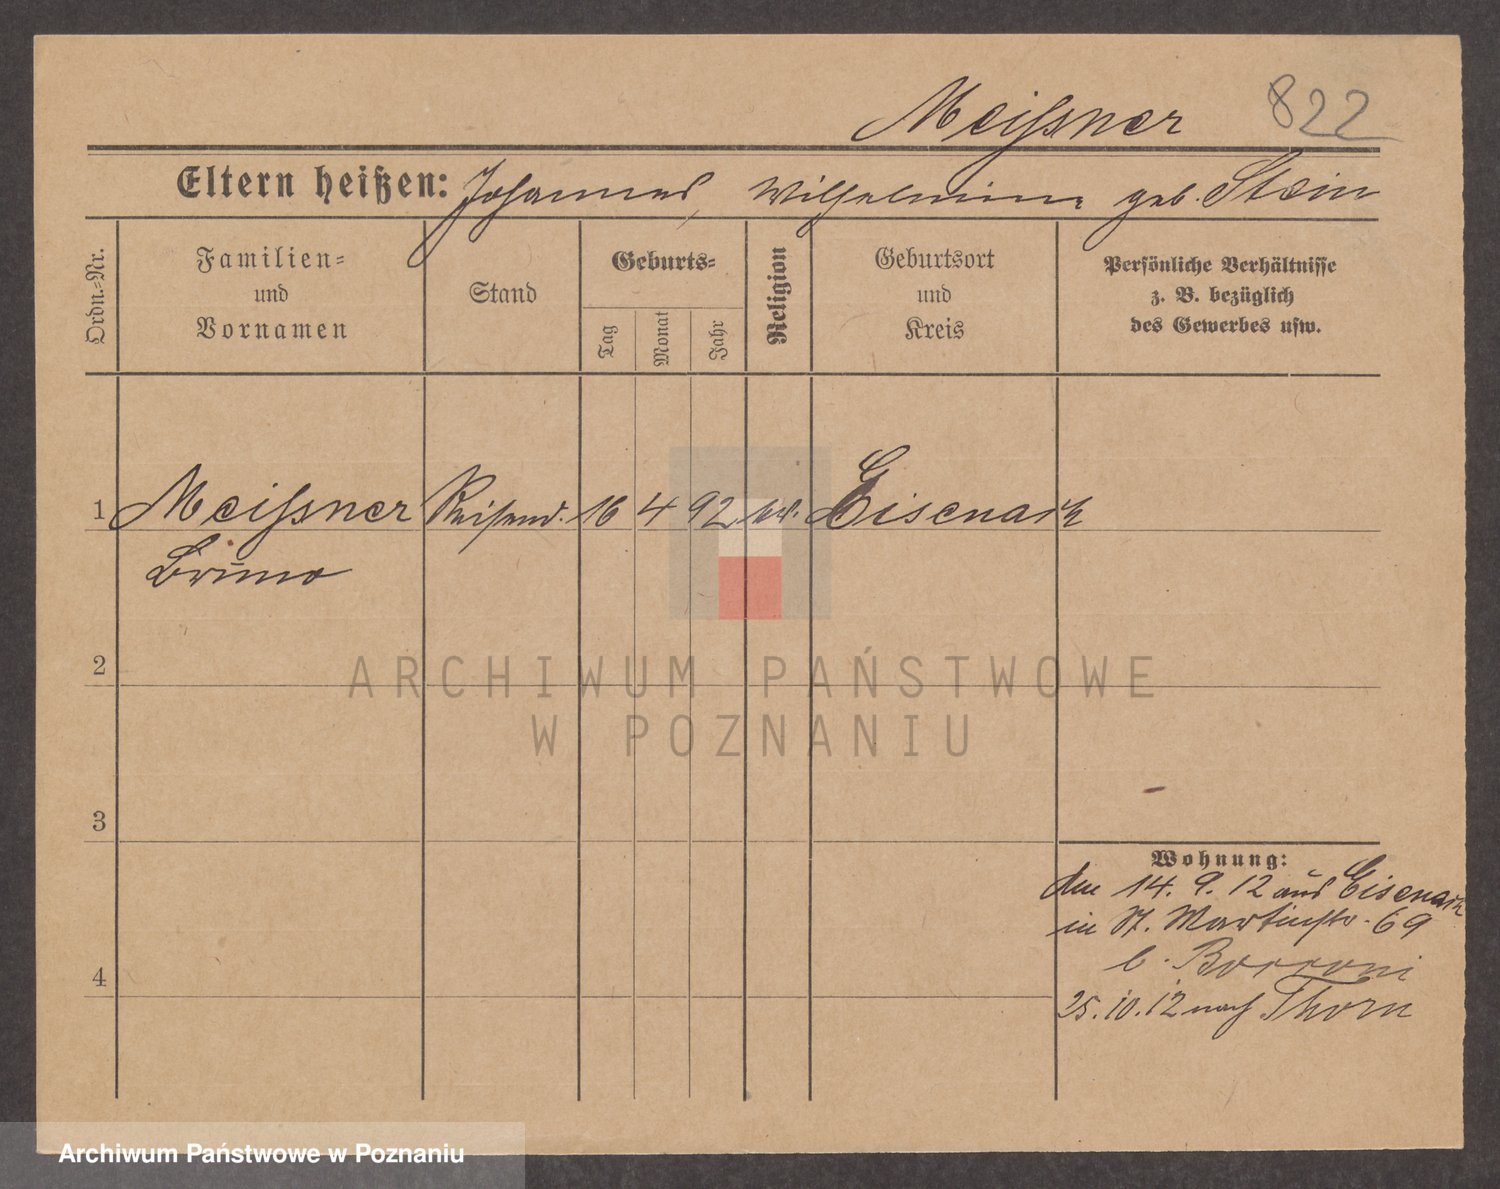 Meissner 822
Eltern heißen: Johannes, Wilhelmine geb. Stein
Ordn.-Nr.
Familien-
und
Vornamen
Stand
Geburts-
Tag
Monat
Jahr
Religion
Geburtsort
und
Kreis
Persönliche Verhältnisse
z. B. bezüglich
des Gewerbes usw.
1 Meissner Reisend. 16 4 92 ev. Eisenach
Bruno
2
3
4
Wohnung:
den 14. 9. 12 aus Eisenach
in St. Martinstr. 69
b.
25. 10. 12 nach Thorn
ARCHIWUM PAŃSTWOWE
W POZNANIU
Archiwum Państwowe w Poznaniu